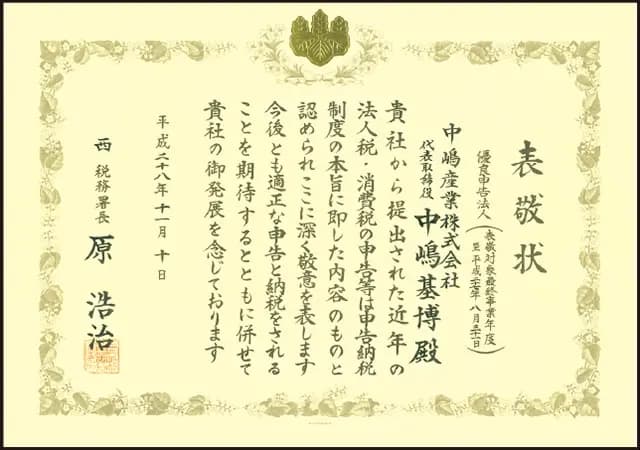 表敬状
優良申告法人
(表敬対象最終事業年度
至平成二七年八月三一日)
中嶋産業株式会社
代表取締役 中嶋基博殿
貴社から提出された近年の
法人税・消費税の申告等は申告納税
制度の本旨に即した内容のものと
認められここに深く敬意を表します
今後とも適正な申告と納税をされる
ことを期待するとともに併せて
貴社の御発展を念じております
平成二十八年十一月十日
西税務署長 原浩治